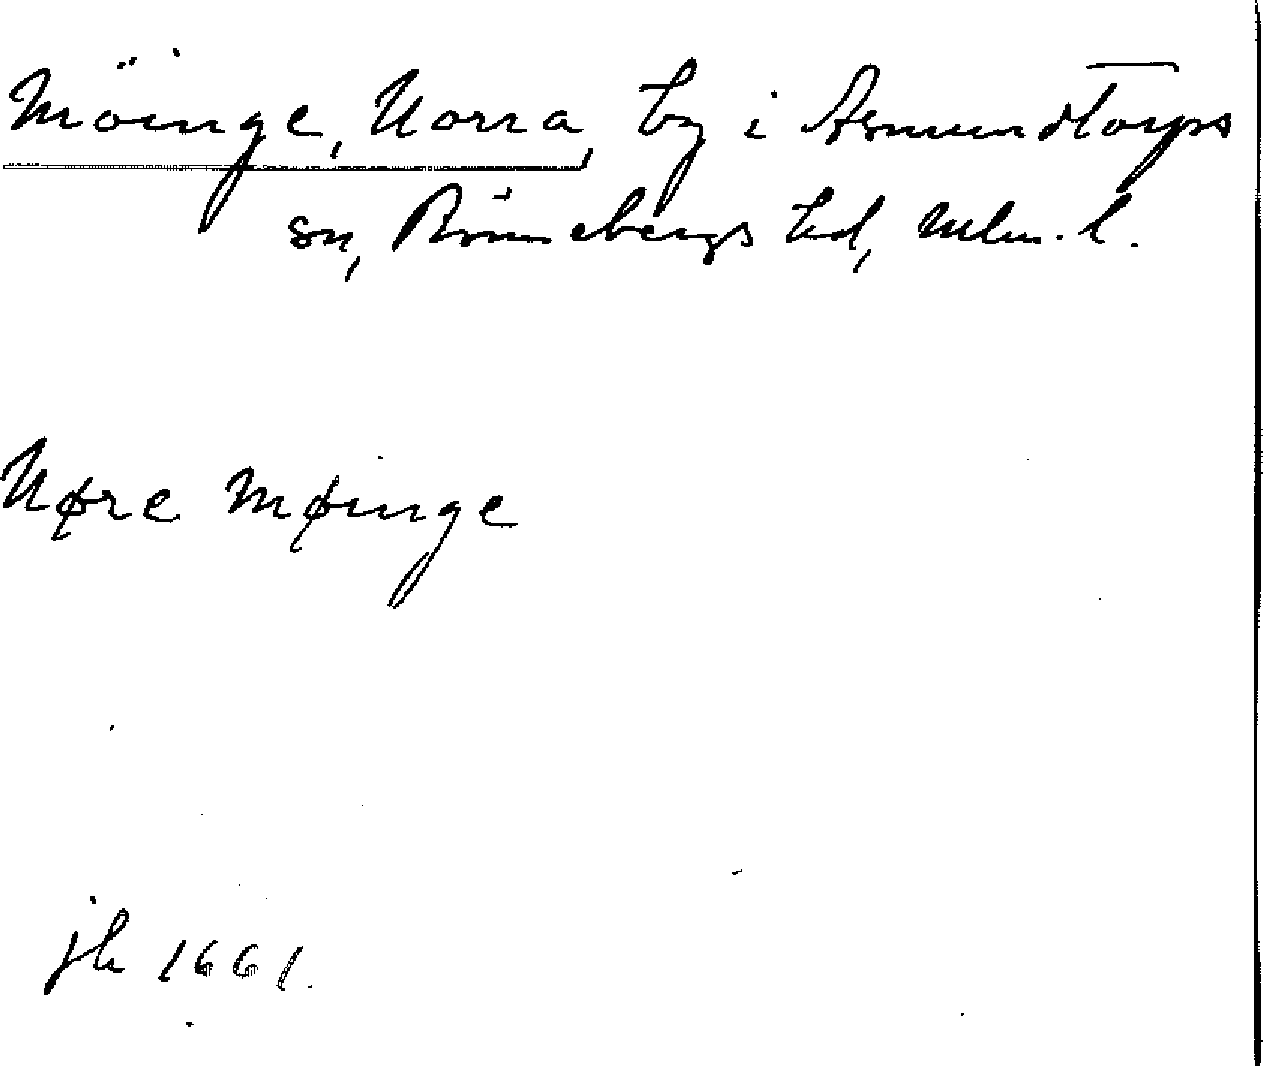 Möinge, Norra, by i Asmundtorps
sn, Rönnebergs hd, Mlm. l.
Nøre Møinge
jb 1661.